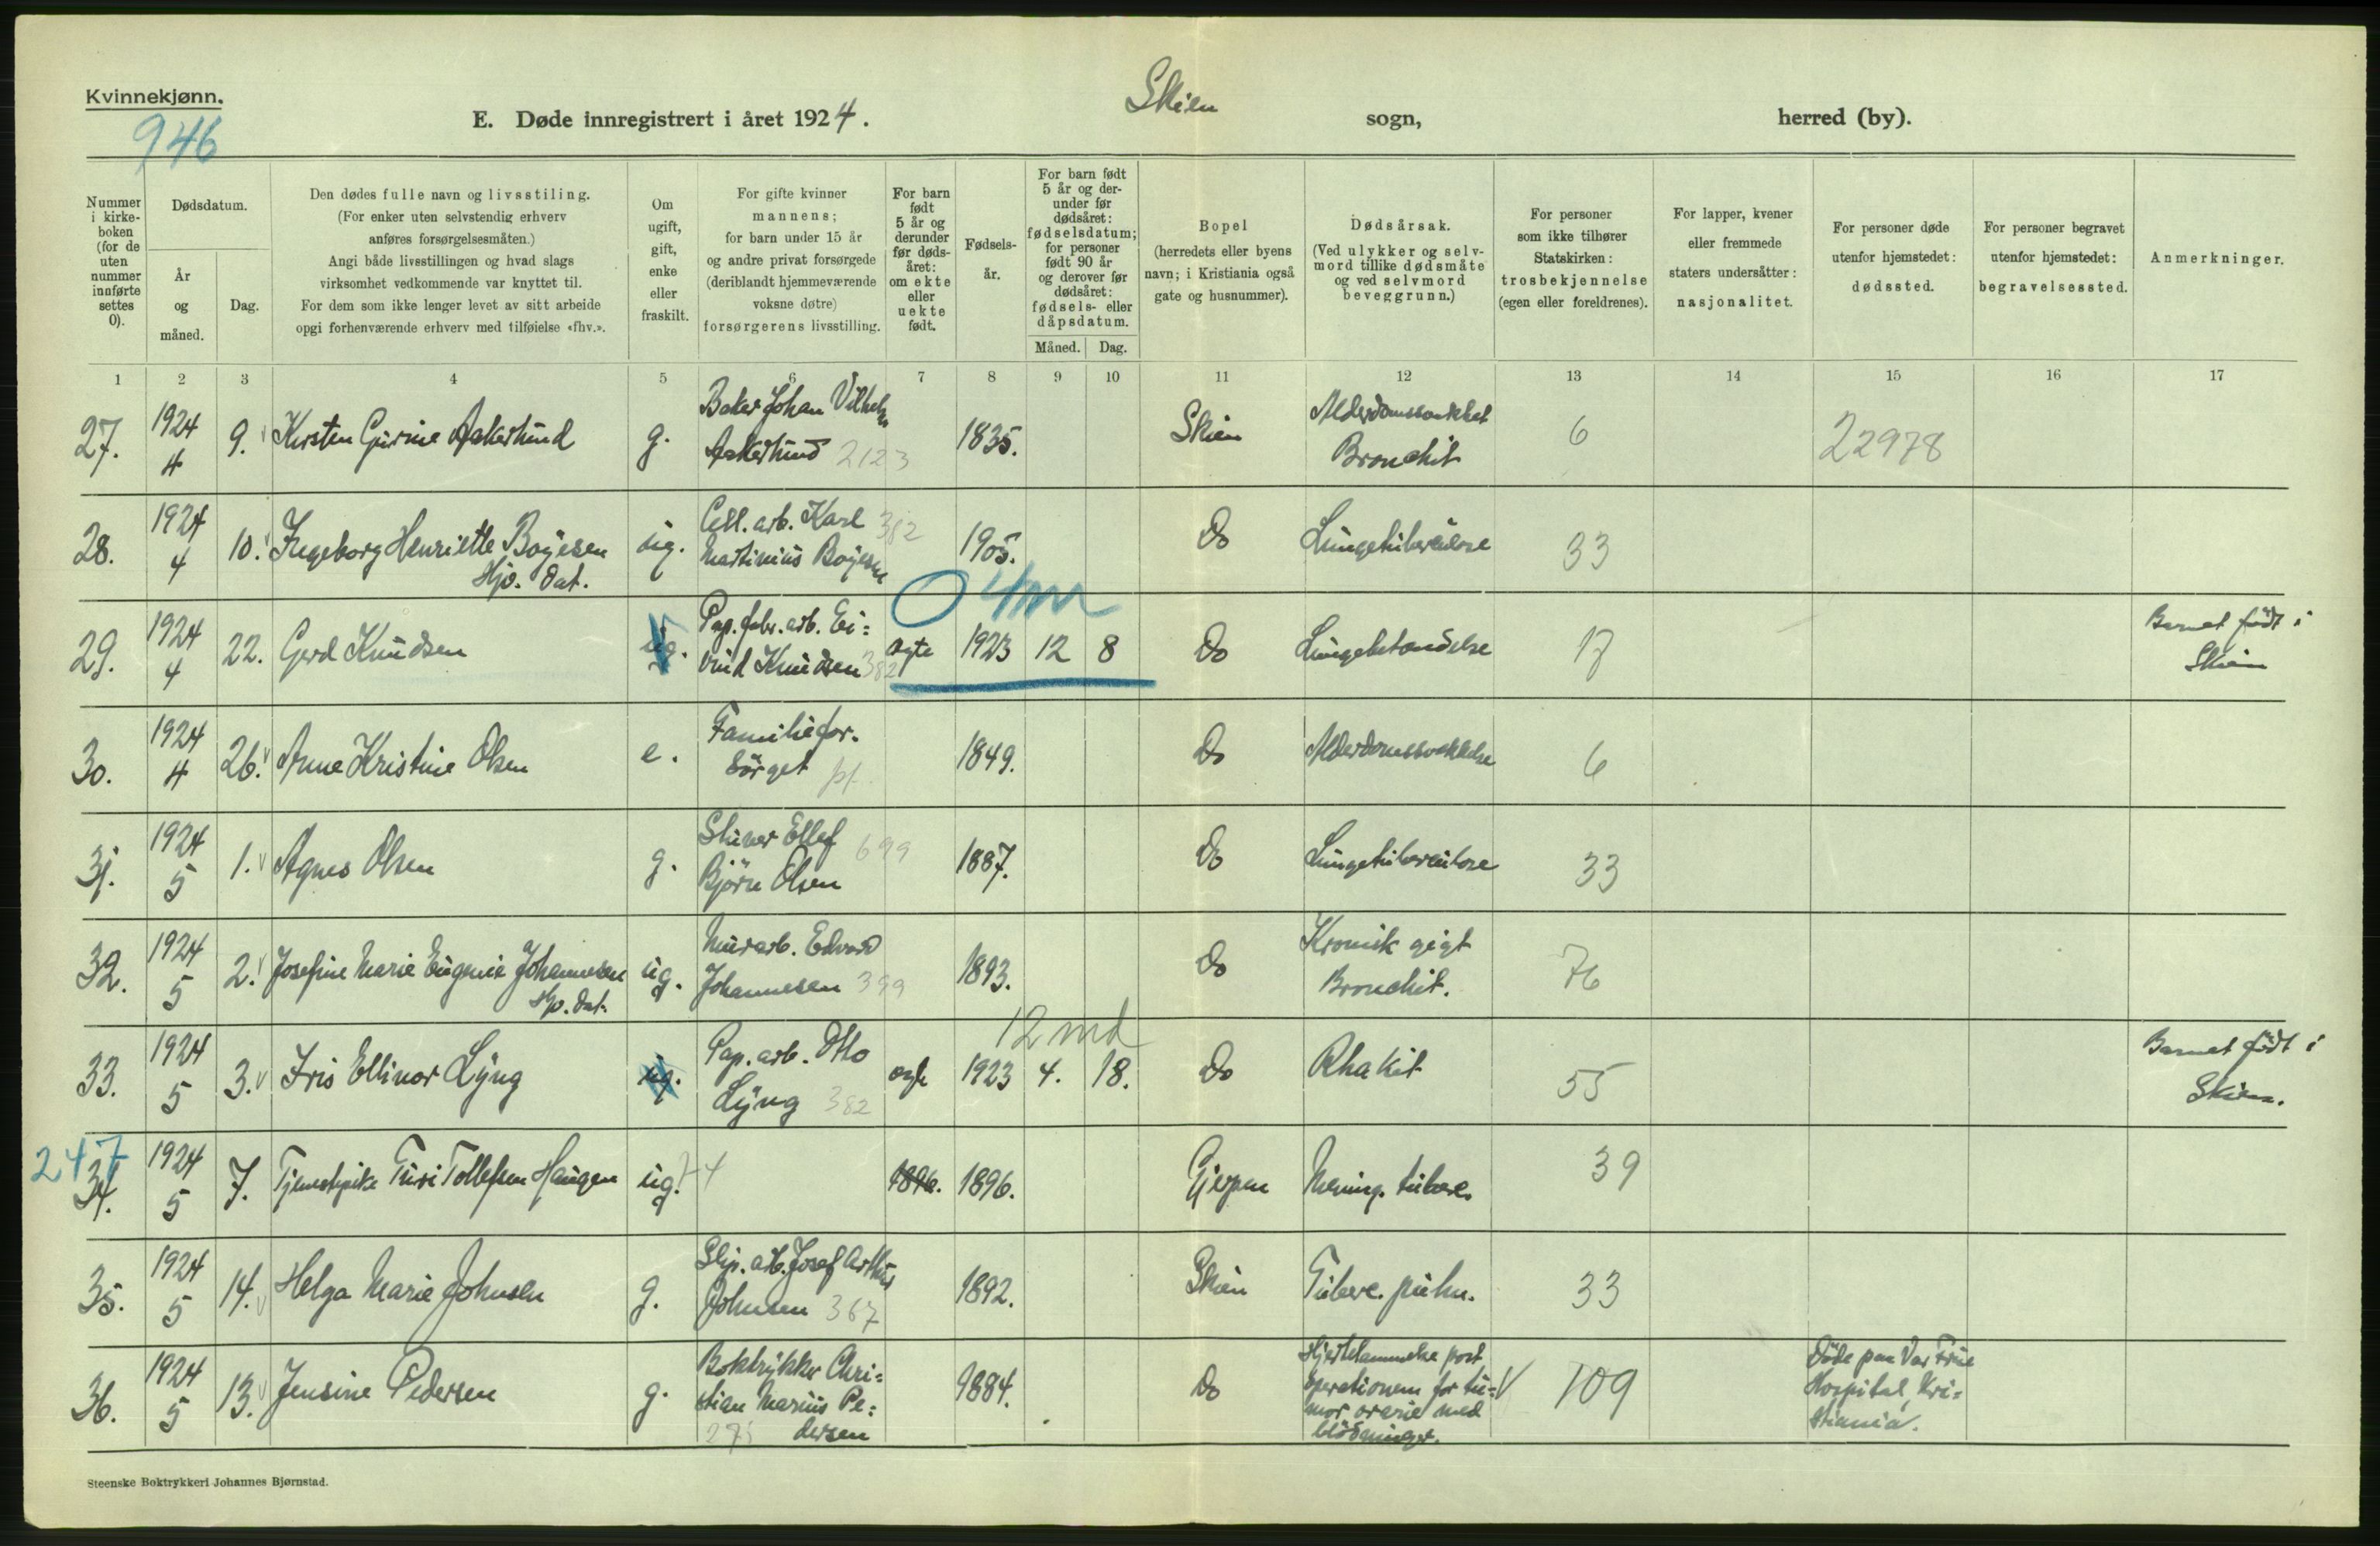 Kvinnekjønn.
946
E. Døde innregistrert i året 1924.
Skien sogn,
herred (by).
Nummer i kirke-boken (for de uten nummer innførte settes 0).
Dødsdatum.
År og måned.
Dag.
Den dødes fulle navn og livsstilling.
(For enker uten selvstendig erhverv
anføres forsørgelsesmåten.)
Angi både livsstillingen og hvad slags
virksomhet vedkommende var knyttet til.
For dem som ikke lenger levet av sitt arbeide
opgi forhenværende erhverv med tilføielse «fhv.».
Om ugift, gift, enke eller fraskilt.
For gifte kvinner
mannens;
for barn under 15 år
og andre privat forsørgede
(deriblandt hjemmeværende
voksne døtre)
forsørgerens livsstilling.
For barn født 5 år og derunder før døds-året: om ekte eller uekte født.
Fødsels-år.
For barn født 5 år og der-under før dødsåret: fødselsdatum; for personer født 90 år og derover før dødsåret: fødsels- eller dåpsdatum.
Måned.
Dag.
Bopel
(herredets eller byens
navn; i Kristiania også
gate og husnummer).
Dødsårsak.
(Ved ulykker og selv-
mord tillike dødsmåte
og ved selvmord
beveggrunn.)
For personer
som ikke tilhører
Statskirken:
trosbekjennelse
(egen eller foreldrenes).
For lapper, kvener
eller fremmede
staters undersåtter:
nasjonalitet.
For personer døde
utenfor hjemstedet:
dødssted.
For personer begravet
utenfor hjemstedet:
begravelsessted.
Anmerkninger.
1 2 3 4 5 6 7 8 9 10 11 12 13 14 15 16 17
27. 1924 4 9. Kirsten Gurine Askerlund g. Baker Johan Vilhelm Askerlund 2123 1835. Skien Alderdomssvakhet Bronchit 6 22978
28. 1924 4 10. Ingeborg Henriette Bøyesen Hjv. dat. ug. Cell. arb. Karl 382 Martinius Bøyesen 1905. Do Lungetuberkulose 33
0 4m
29. 1924 4 22. Gerd Knudsen ug. Pap. fabr. arb. Ei= vind Knudsen 382 ægte 1923 12 8 Do Lungebetændelse 17 Barnet født i Skien
30. 1924 4 26. Anne Kristine Olsen e. Familiefor. sörget pf. 1849. Do Alderdomssvakhet 6
31. 1924 5 1. Agnes Olsen g. Ellef 699 Björn Olsen 1887. Do Lungetuberkulose 33
32. 1924 5 2. Josefine Marie Eugenie Johannesen Hjv. dat. ug. Murarb. Edvard Johannesen 399 1893. Do Kronisk gigt Bronchit. 76
12 md
33. 1924 5 3. Iris Ellinor Lyng ug. Pap. arb. Otto Lyng 382 ægte 1923 4. 18. Do Rhakit 55 Barnet født i Skien.
247
34. 1924 5 7. Tjenestepike Turi Tollefsen Haugen ug. 74 1896. 1896. Gjerpen Mening. tuberc. 39
35. 1924 5 14. Helga Marie Johnsen g. Slip. arb. Josef Arthur Johnsen 367 1892. Skien Tuberc. pulm. 33
36. 1924 5 13. Jensine Pedersen g. Boktrykker Chri= stian Marius Pe= dersen 1884. Do Hjertelammelse post operationem for tu= mor ovarie med blödninger. 109 Döde paa Vor Frue Hospital, Kri= stiania.
Steenske Boktrykkeri Johannes Bjørnstad.